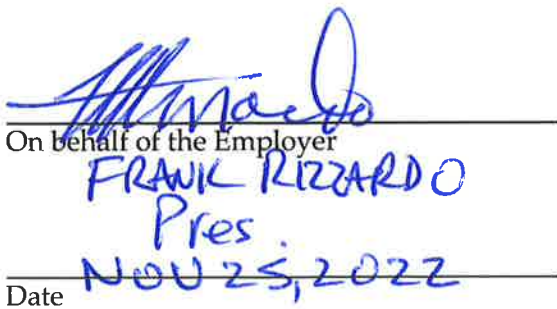 On behalf of the Employer
FRANK RIZZARDO
Pres.
NOV 25, 2022
Date